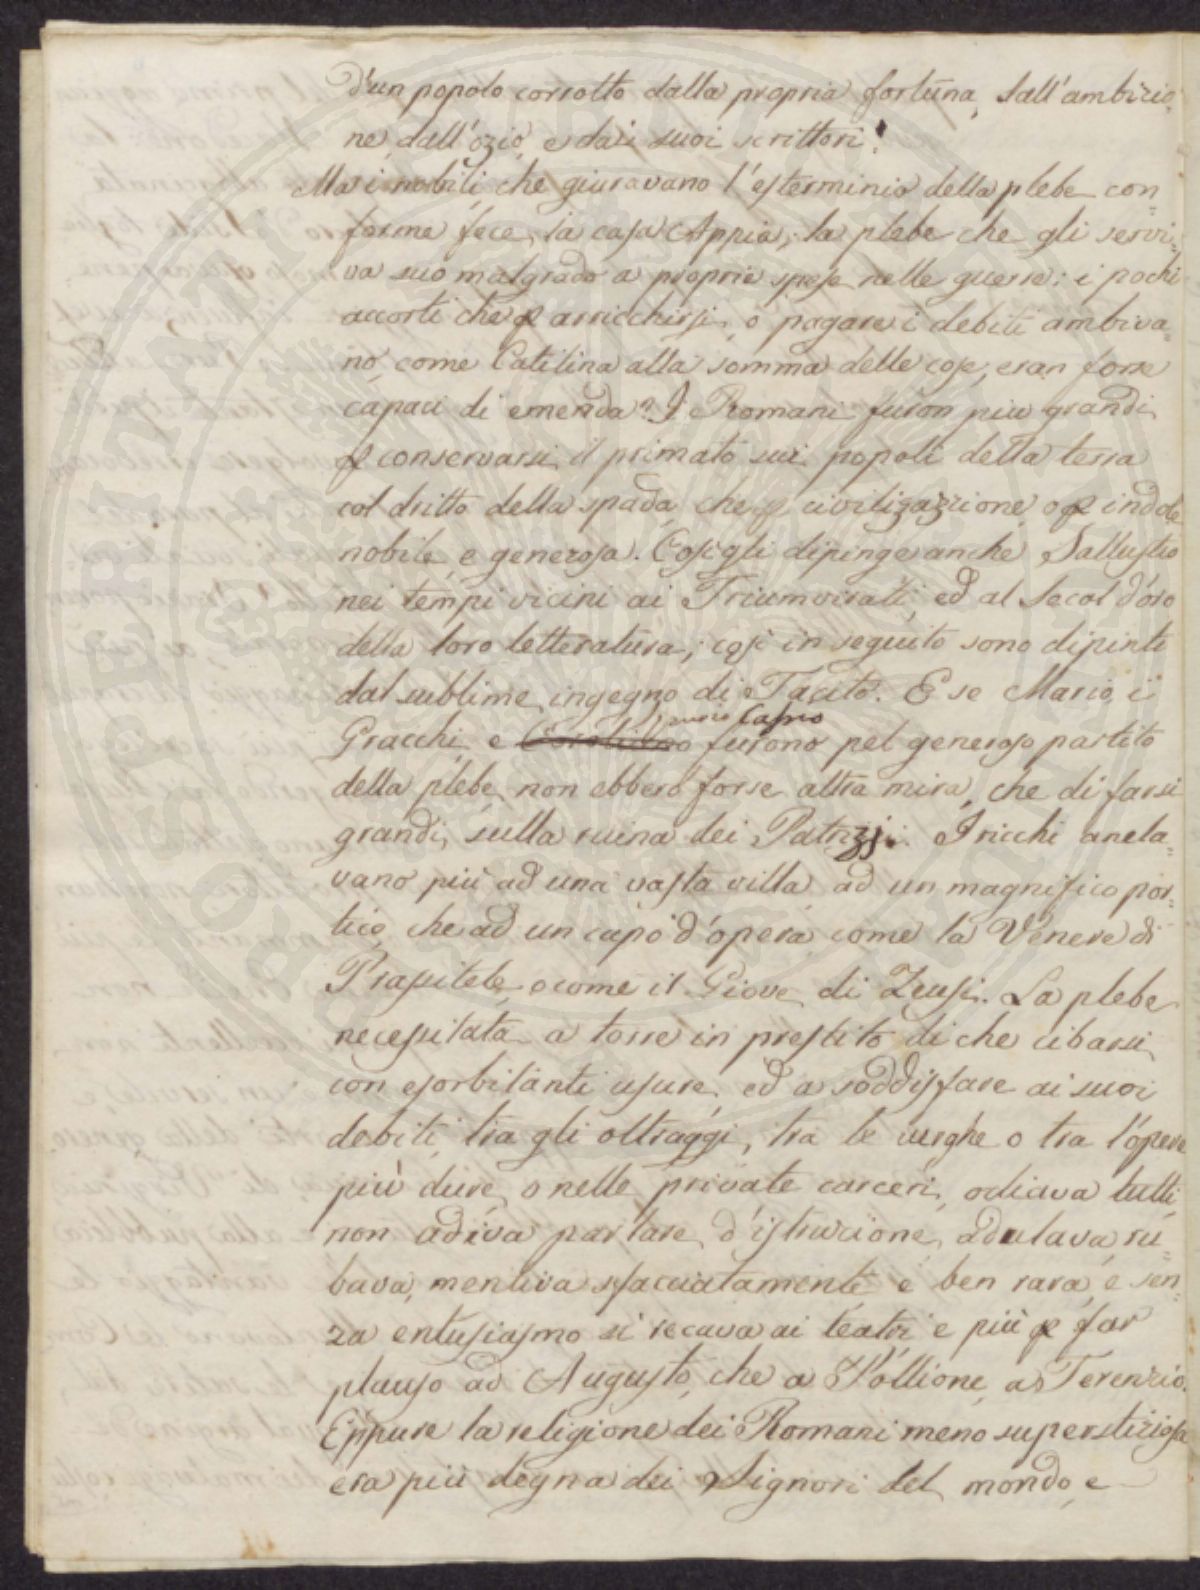 d'un popolo corrotto dalla propria fortuna, dall'ambizio,
ne, dall'ozio, e dai suoi scrittori!
Ma i nobili, che giuravano l'esterminio della plebe con=
forme fece la casa Appia; la plebe che gli servi=
va suo malgrado a proprie spese nelle guerre: i pochi
accorti che ꝑ arricchirsi, o pagare i debiti ambiva=
no, come Catilina alla somma delle cose, eran forse
capaci di emenda? I Romani furon più grandi
ꝑ conservarsi il primato sui popoli della terra
col dritto della spada, che ꝑ civilizazzione, o ꝑ indole
nobile, e generosa. Così gli dipinge anche Sallustio
nei tempi vicini ai Triumvirati, ed al secol d'oro
della loro letteratura; così in seguito sono dipinti
dal sublime ingegno di Tacito. E se Mario, i
Gracchi, e Cassio furono pel generoso partito
della plebe, non ebbero forse altra mira, che di farsi
grandi, sulla ruina dei Patrizj. I ricchi anela=
vano più ad una vasta villa, ad un magnifico por=
tico, che ad un capo d'opera come la Venere di
Prassitele, o come il Giove di Zeusi. La plebe
necessitata a torre in prestito di che cibarsi
con esorbitanti usure, ed a soddisfare ai suoi
debiti, tra gli oltraggi, tra le verghe o tra l'opere
più dure, o nelle private carceri, odiava tutti,
non adiva parlare d'istruzione, adulava, ru=
bava, mentiva sfacciatamente, e ben rara, e sen=
za entusiasmo si recava ai teatri e più ꝑ far
plauso ad Augusto, che a Pollione, a Terenzio.
Eppure la religione dei Romani meno superstiziosa
era più degna dei Signori del mondo, e
PROPERINATI